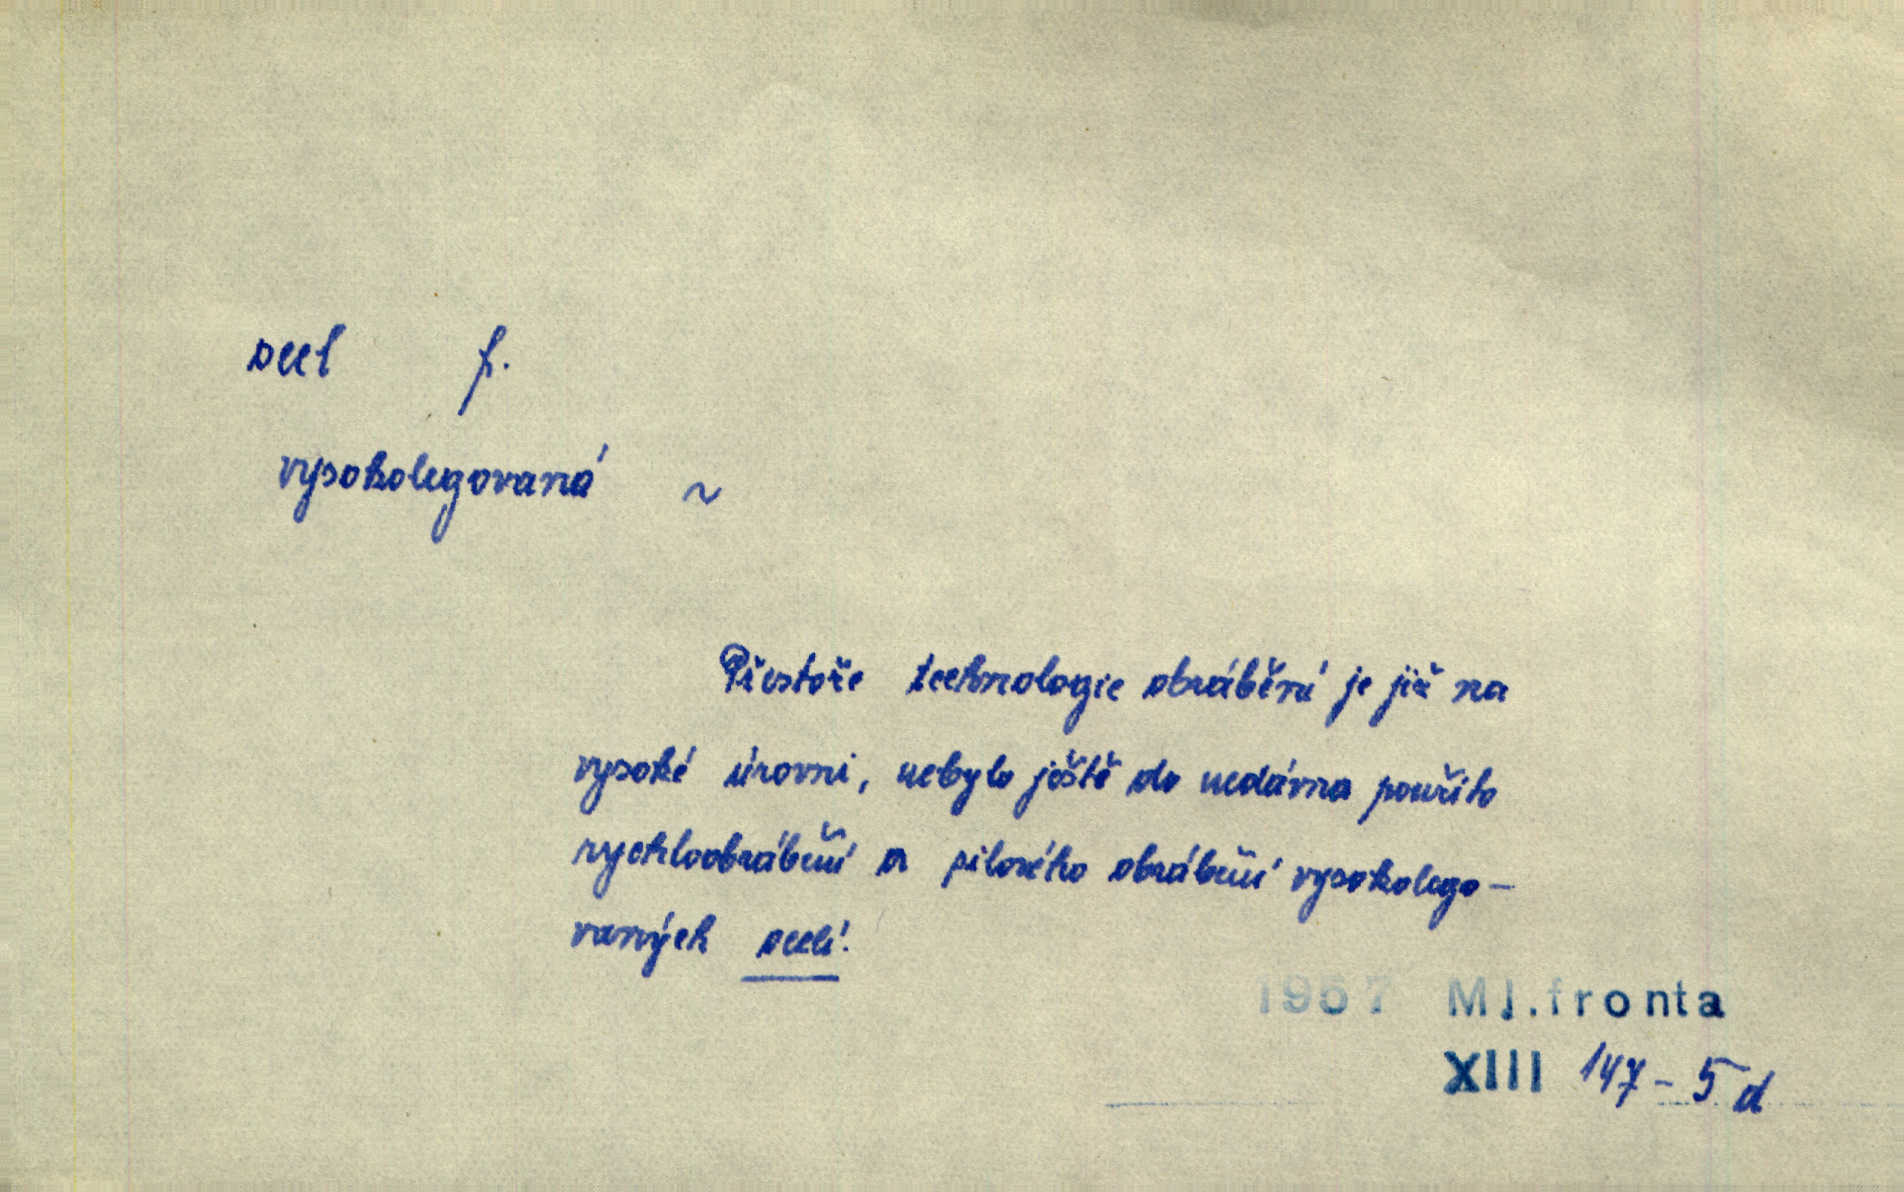 ocel f.
vysokolegovaná ~
Přestože technologie obrábění je již na
vysoké úrovni, nebylo ještě do nedávna použito
rychloobrábění a silového obrábění vysokolego-
vaných ocelí.
1957 Ml.fronta
XIII 147 - 5 d